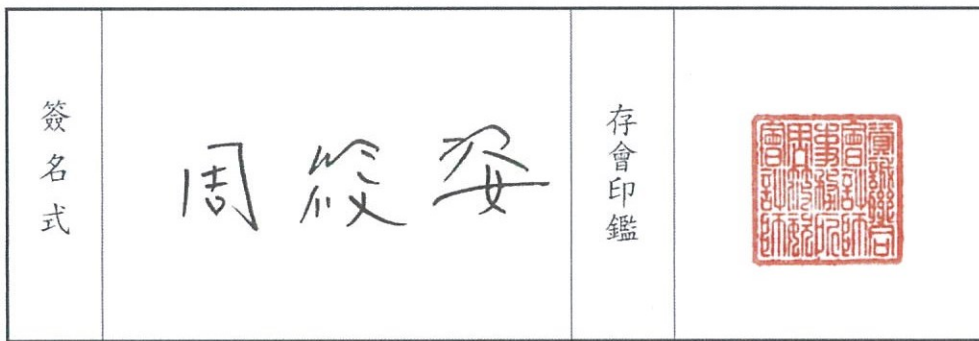 簽名式
周筱姿
存會印鑑
資誠聯合
會計師
事務所
周筱姿
會計師